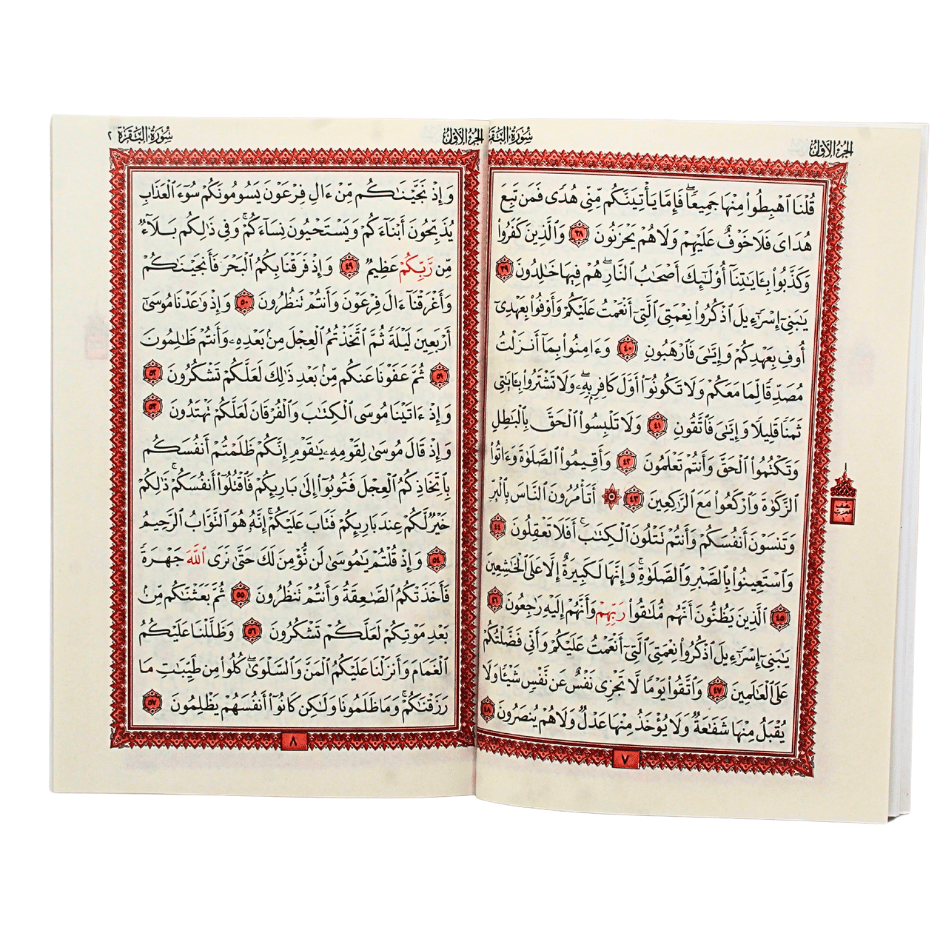 الجزء الأول
سورة البقرة
قُلْنَا ٱهْبِطُوا۟ مِنْهَا جَمِيعًا ۖ فَإِمَّا يَأْتِيَنَّكُم مِّنِّى هُدًى فَمَن تَبِعَ
هُدَاىَ فَلَا خَوْفٌ عَلَيْهِمْ وَلَا هُمْ يَحْزَنُونَ ٣٨ وَٱلَّذِينَ كَفَرُوا۟
وَكَذَّبُوا۟ بِـَٔايَٰتِنَآ أُو۟لَٰٓئِكَ أَصْحَٰبُ ٱلنَّارِ ۖ هُمْ فِيهَا خَٰلِدُونَ ٣٩
يَٰبَنِىٓ إِسْرَٰٓءِيلَ ٱذْكُرُوا۟ نِعْمَتِىَ ٱلَّتِىٓ أَنْعَمْتُ عَلَيْكُمْ وَأَوْفُوا۟ بِعَهْدِىٓ
أُوفِ بِعَهْدِكُمْ وَإِيَّٰىَ فَٱرْهَبُونِ ٤٠ وَءَامِنُوا۟ بِمَآ أَنزَلْتُ
مُصَدِّقًا لِّمَا مَعَكُمْ وَلَا تَكُونُوٓا۟ أَوَّلَ كَافِرٍۭ بِهِۦ ۖ وَلَا تَشْتَرُوا۟ بِـَٔايَٰتِى
ثَمَنًا قَلِيلًا وَإِيَّٰىَ فَٱتَّقُونِ ٤١ وَلَا تَلْبِسُوا۟ ٱلْحَقَّ بِٱلْبَٰطِلِ
وَتَكْتُمُوا۟ ٱلْحَقَّ وَأَنتُمْ تَعْلَمُونَ ٤٢ وَأَقِيمُوا۟ ٱلصَّلَوٰةَ وَءَاتُوا۟
ٱلزَّكَوٰةَ وَٱرْكَعُوا۟ مَعَ ٱلرَّٰكِعِينَ ٤٣ أَتَأْمُرُونَ ٱلنَّاسَ بِٱلْبِرِّ
وَتَنسَوْنَ أَنفُسَكُمْ وَأَنتُمْ تَتْلُونَ ٱلْكِتَٰبَ ۚ أَفَلَا تَعْقِلُونَ ٤٤
وَٱسْتَعِينُوا۟ بِٱلصَّبْرِ وَٱلصَّلَوٰةِ ۚ وَإِنَّهَا لَكَبِيرَةٌ إِلَّا عَلَى ٱلْخَٰشِعِينَ
٤٥ ٱلَّذِينَ يَظُنُّونَ أَنَّهُم مُّلَٰقُوا۟ رَبِّهِمْ وَأَنَّهُمْ إِلَيْهِ رَٰجِعُونَ ٤٦
يَٰبَنِىٓ إِسْرَٰٓءِيلَ ٱذْكُرُوا۟ نِعْمَتِىَ ٱلَّتِىٓ أَنْعَمْتُ عَلَيْكُمْ وَأَنِّى فَضَّلْتُكُمْ
عَلَى ٱلْعَٰلَمِينَ ٤٧ وَٱتَّقُوا۟ يَوْمًا لَّا تَجْزِى نَفْسٌ عَن نَّفْسٍ شَيْـًٔا وَلَا
يُقْبَلُ مِنْهَا شَفَٰعَةٌ وَلَا يُؤْخَذُ مِنْهَا عَدْلٌ وَلَا هُمْ يُنصَرُونَ ٤٨
٧
الجزء الأول
سورة البقرة ٢
وَإِذْ نَجَّيْنَٰكُم مِّنْ ءَالِ فِرْعَوْنَ يَسُومُونَكُمْ سُوٓءَ ٱلْعَذَابِ
يُذَبِّحُونَ أَبْنَآءَكُمْ وَيَسْتَحْيُونَ نِسَآءَكُمْ ۚ وَفِى ذَٰلِكُم بَلَآءٌ
مِّن رَّبِّكُمْ عَظِيمٌ ٤٩ وَإِذْ فَرَقْنَا بِكُمُ ٱلْبَحْرَ فَأَنجَيْنَٰكُمْ
وَأَغْرَقْنَآ ءَالَ فِرْعَوْنَ وَأَنتُمْ تَنظُرُونَ ٥٠ وَإِذْ وَٰعَدْنَا مُوسَىٰٓ
أَرْبَعِينَ لَيْلَةً ثُمَّ ٱتَّخَذْتُمُ ٱلْعِجْلَ مِنۢ بَعْدِهِۦ وَأَنتُمْ ظَٰلِمُونَ
٥١ ثُمَّ عَفَوْنَا عَنكُم مِّنۢ بَعْدِ ذَٰلِكَ لَعَلَّكُمْ تَشْكُرُونَ ٥٢
وَإِذْ ءَاتَيْنَا مُوسَى ٱلْكِتَٰبَ وَٱلْفُرْقَانَ لَعَلَّكُمْ تَهْتَدُونَ ٥٣
وَإِذْ قَالَ مُوسَىٰ لِقَوْمِهِۦ يَٰقَوْمِ إِنَّكُمْ ظَلَمْتُمْ أَنفُسَكُم
بِٱتِّخَاذِكُمُ ٱلْعِجْلَ فَتُوبُوٓا۟ إِلَىٰ بَارِئِكُمْ فَٱقْتُلُوٓا۟ أَنفُسَكُمْ ذَٰلِكُمْ
خَيْرٌ لَّكُمْ عِندَ بَارِئِكُمْ فَتَابَ عَلَيْكُمْ ۚ إِنَّهُۥ هُوَ ٱلتَّوَّابُ ٱلرَّحِيمُ
٥٤ وَإِذْ قُلْتُمْ يَٰمُوسَىٰ لَن نُّؤْمِنَ لَكَ حَتَّىٰ نَرَى ٱللَّهَ جَهْرَةً
فَأَخَذَتْكُمُ ٱلصَّٰعِقَةُ وَأَنتُمْ تَنظُرُونَ ٥٥ ثُمَّ بَعَثْنَٰكُم مِّنۢ
بَعْدِ مَوْتِكُمْ لَعَلَّكُمْ تَشْكُرُونَ ٥٦ وَظَلَّلْنَا عَلَيْكُمُ
ٱلْغَمَامَ وَأَنزَلْنَا عَلَيْكُمُ ٱلْمَنَّ وَٱلسَّلْوَىٰ ۖ كُلُوا۟ مِن طَيِّبَٰتِ مَا
رَزَقْنَٰكُمْ ۖ وَمَا ظَلَمُونَا وَلَٰكِن كَانُوٓا۟ أَنفُسَهُمْ يَظْلِمُونَ ٥٧
٨